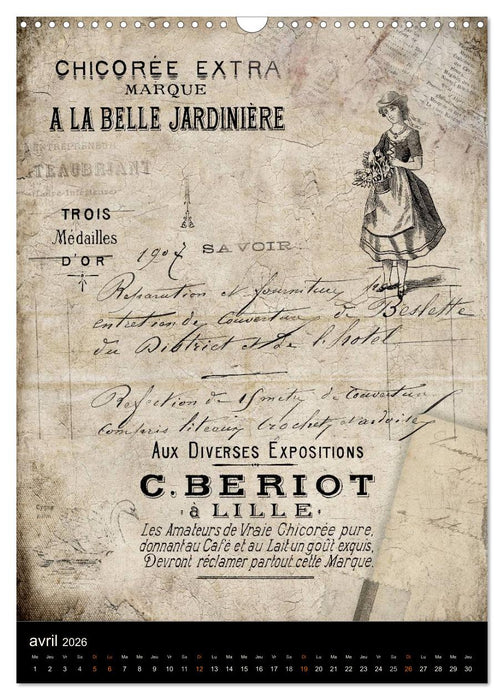 CHICORÉE EXTRA
MARQUE
A LA BELLE JARDINIÈRE
ENTREPRENEUR
TEAUBRIANT
TROIS
Médailles
D'OR
SAVOIR
1907
Réparation et fourniture pour
entretien de Couverture de Beslette
du District et de l'hotel
Refection de 15 metres de Couverture
Compris liteaux Crochets et ardoises
AUX DIVERSES EXPOSITIONS
C. BERIOT
à LILLE
Les Amateurs de Vraie Chicorée pure,
donnant au Café et au Lait un goût exquis,
Devront réclamer partout cette Marque.
avril 2026
Me Jeu Ve Sa Di Lu Ma Me Jeu Ve Sa Di Lu Ma Me Jeu Ve Sa Di Lu Ma Me Jeu Ve Sa Di Lu Ma Me Jeu
1 2 3 4 5 6 7 8 9 10 11 12 13 14 15 16 17 18 19 20 21 22 23 24 25 26 27 28 29 30